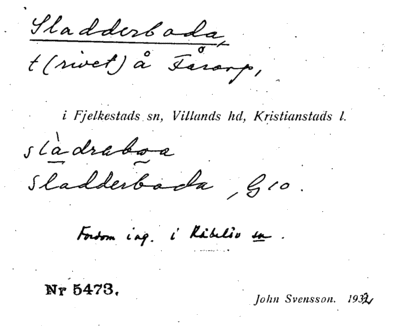 Sladderboda,
t(rivet) å Fårarp,
i Fjelkestads sn, Villands hd, Kristianstads l.
slàdraboa
Sladderboda, G10.
Fordom ing. i Räbelöv sn.
Nr 5473.
John Svensson. 1932